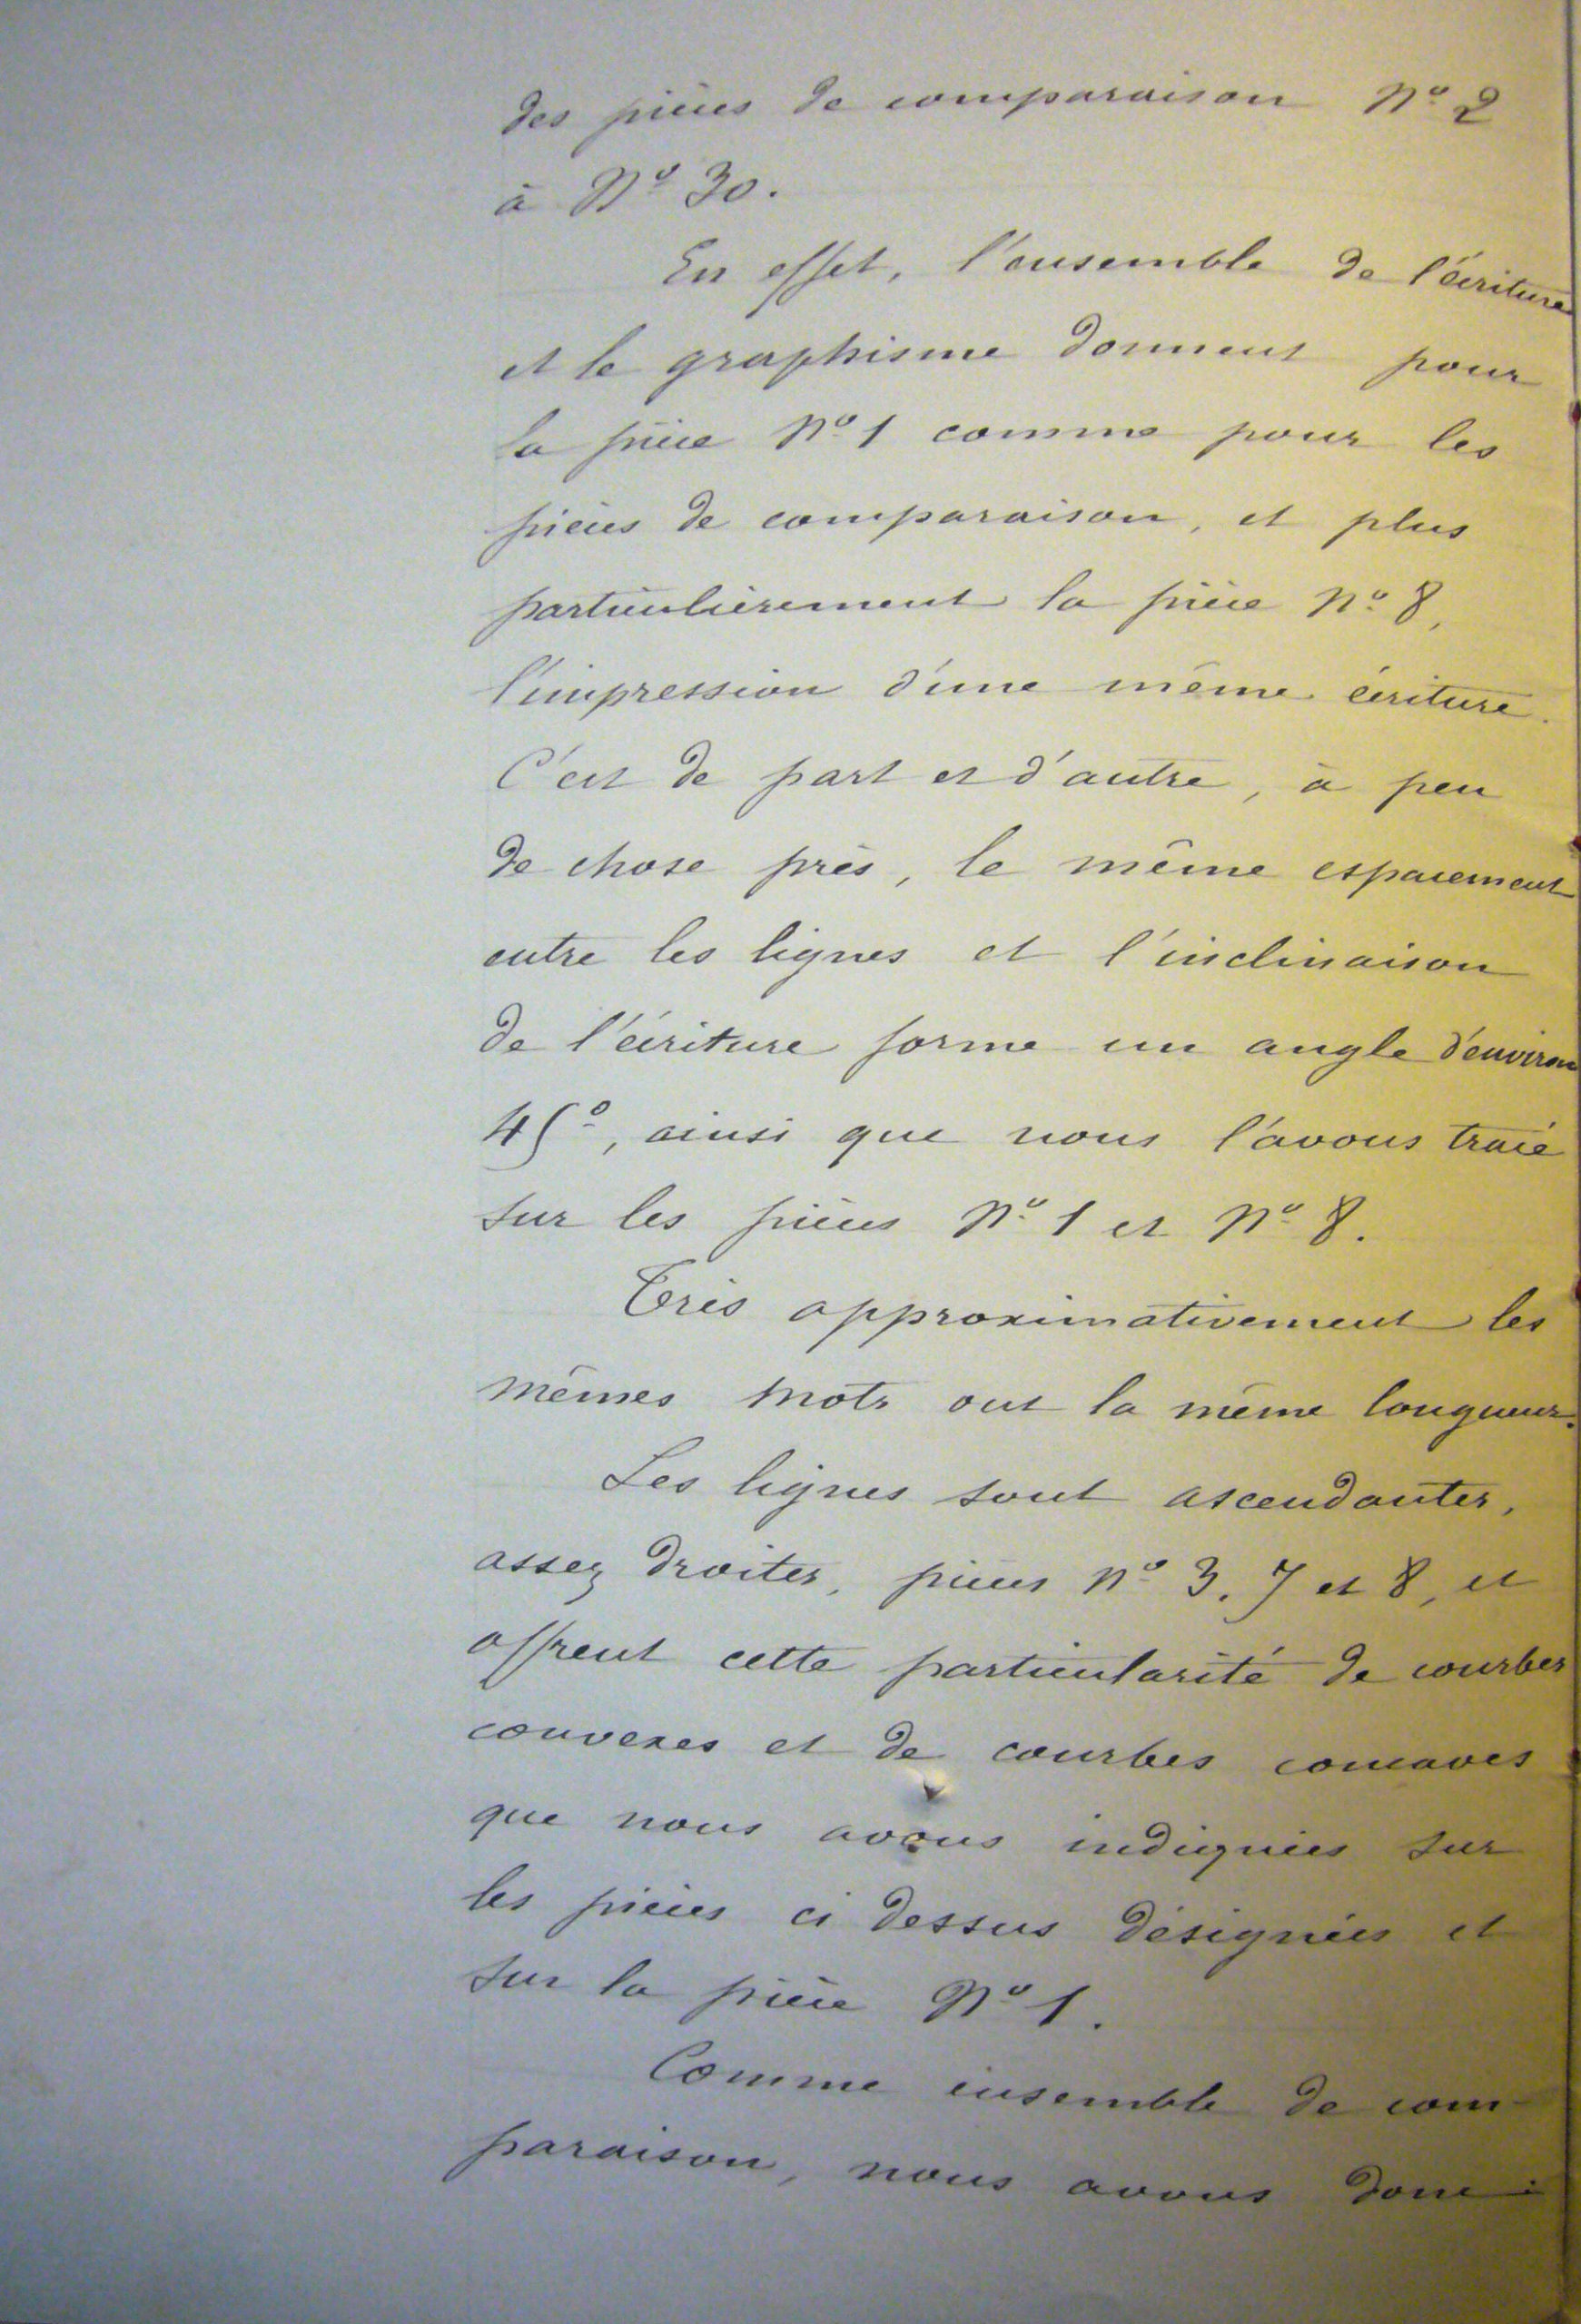 des pièces de comparaison Nº 2
à Nº 30.
En effet, l'ensemble de l'écriture
et le graphisme donnent pour
la pièce Nº 1 comme pour les
pièces de comparaison, et plus
particulièrement la pièce Nº 8,
l'impression d'une même écriture.
C'est de part et d'autre, à peu
de chose près, le même espacement
entre les lignes et l'inclinaison
de l'écriture forme un angle d'environ
45º, ainsi que nous l'avons tracé
sur les pièces Nº 1 et Nº 8.
Très approximativement les
mêmes mots ont la même longueur.
Les lignes sont ascendantes,
assez droites, pièces nº 3, 7 et 8, et
offrent cette particularité de courbes
convexes et de courbes concaves
que nous avons indiquées sur
les pièces ci dessus désignées et
sur la pièce Nº 1.
Comme ensemble de com-
paraison, nous avons donc :